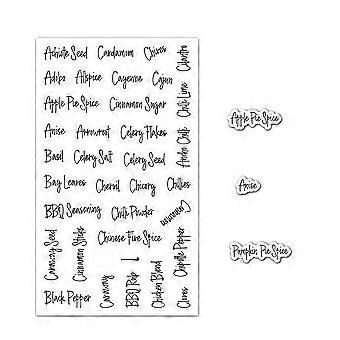 Annatto Seed Cardamom Chives Cilantro
Adobo Allspice Cayenne Cajun
Apple Pie Spice Cinnamon Sugar Chili Lime
Anise Arrowroot Celery Flakes
Ancho Chili
Basil Celery Salt Celery Seed
Bay Leaves Chervil Chicory Chilies
BBQ Seasoning Chili Powder
Chinese Five Spice
Caraway Seed
Cinnamon Sticks
Caraway
BBQ Rub
Chicken Blend
Chipotle Pepper
Cloves
Black Pepper
Apple Pie Spice
Anise
Pumpkin Pie Spice